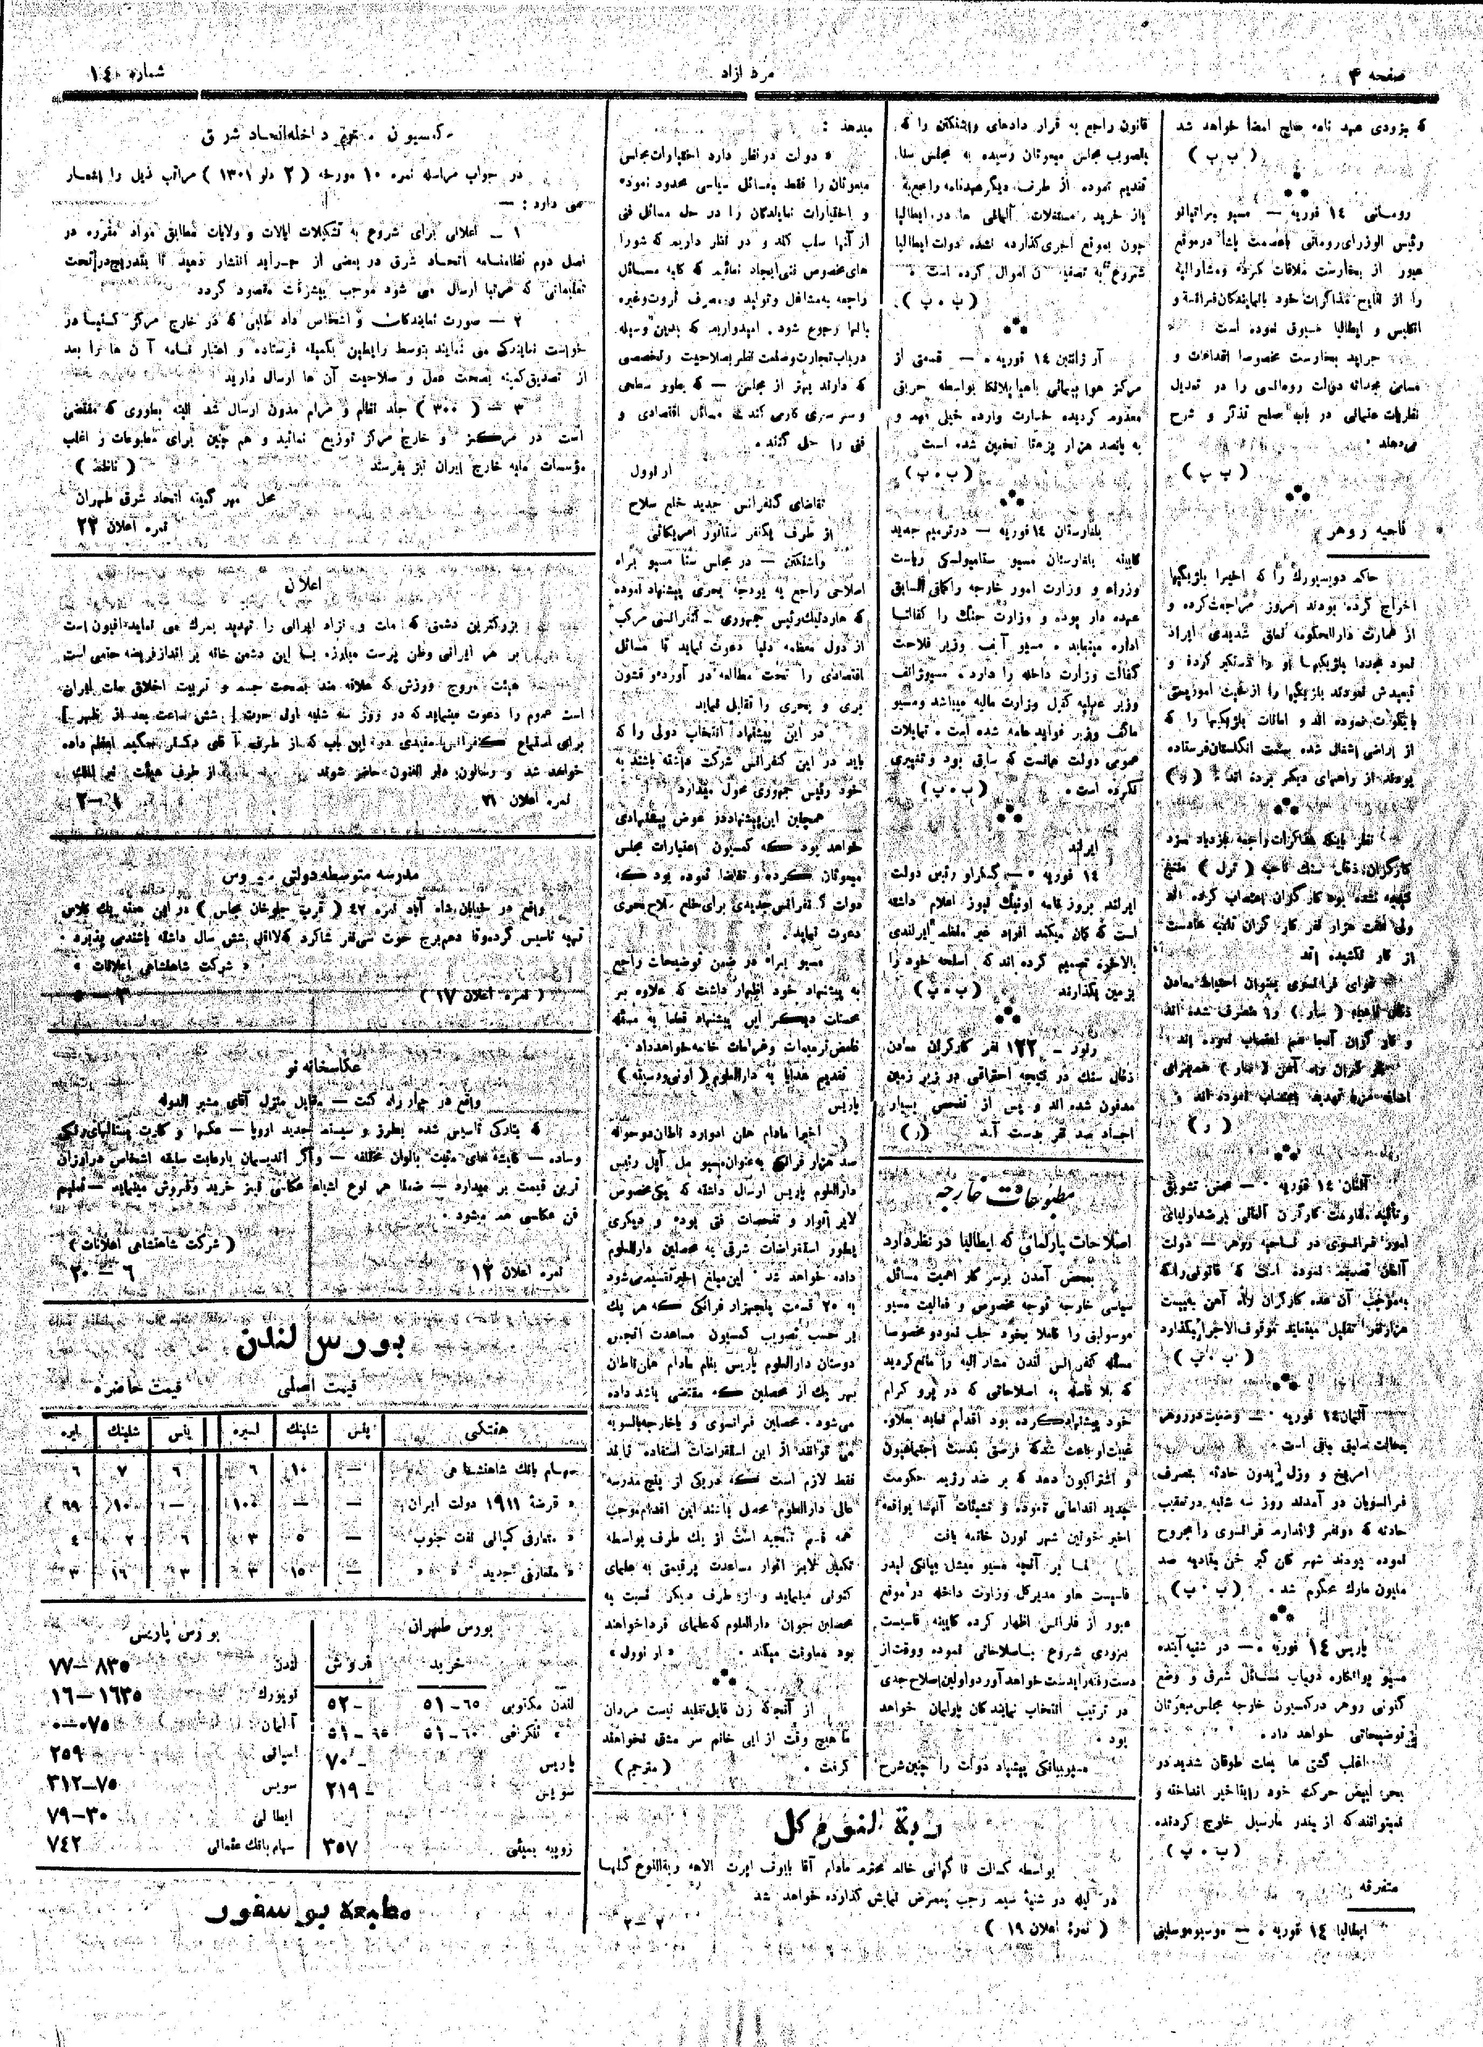 صفحه ۴
مرد آزاد
شماره ۱۴
که بزودی عهد نامه صلح امضا خواهد شد
( ب پ )
رومانی ۱۴ فوریه — مسیو براتیانو
رئیس الوزرای رومانی باعصمت پاشا درموقع
عبور از بخارست ملاقات کرده ومشارالیه
را از نتایج مذاکرات خود بانمایندگان فرانسه و
انگلیس و ایطالیا مسبوق نموده است
جراید بخارست مخصوصا اقدامات و
مساعی مجدانه دولت رومانی را در تعدیل
نظریات عثمانی در باب صلح تذکر و شرح
می‌دهند ۰
( ب پ )
ناحیه روهر
حاکم دوسبورک را که اخیرا بلژیکیها
اخراج کرده بودند امروز مراجعت کرده و
از عمارت دارالحکومه نطق شدیدی ایراد
نمود مجددا بلژیکیها او را دستگیر کرده و
از اراضی اشغالی شده بسمت انگلستان فرستاده
بودند از راههای دیگر برده اند ۰ ( ر )
کارگران ذغال سنگ ناحیه
ولی هفت هزار نفر کار گران
از کار نکشیده اند
( ر )
آلمان ۱۴ فوریه ۰ — محض تشویق
و تأکید مقاومت کارگران آلمانی برضد اولیای
امور فرانسوی در ناحیه روهر — دولت
آلمان تصمیم نموده است که قانونی را که
بموجب آن عده کارگران راه آهن به بیست
هزار نفر تقلیل مینماید موقوف الاجرا بگذارد
( ب ۰ پ )
آلمان ۱۴ فوریه ۰ — وضعیت در روهر
بحالت سابق باقی است ۰
امریخ و وزل بدون حادثه بتصرف
فرانسویان در آمدند روز سه شنبه در تعقیب
حادثه که دونفر ژاندارم فرانسوی را مجروح
نموده بودند شهر
ملیون مارک محکوم شد ۰ ( ب ۰ پ )
پاریس ۱۴ فوریه ۰ — در شنبه آینده
مسیو پوانکاره درباب مسائل شرق و وضع
کنونی روهر در کمسیون خارجه مجلس مبعوثان
توضیحاتی خواهد داد ۰
اغلب کشتی ها بعلت طوفان شدید در
بحر ابیض حرکت خود را بتاخیر انداخته و
نمیتوانند که از بندر مارسیل خارج گردند
( ب ۰ پ )
متفرقه
ایطالیا ۱۴ فوریه ۰ — موسیو موسلینی
قانون راجع به قرار دادهای واشنگتن را که
بالصویب مجلس مبعوثان رسیده به مجلس سنا
تقدیم نموده از طرف دیگر عهدنامه راجع به
باز خرید مستغلات آلمانی ها در ایطالیا
چون بموقع اجری گذارده نشده دولت ایطالیا
شروع به تصفیه آن اموال کرده است ۰
( ب ۰ پ )
آر ژانتین ۱۴ فوریه ۰ — قسمتی از
مرکز هوا پیمائی باهیا بلانکا بواسطه حریقی
معدوم گردیده خسارت وارده خیلی مهم و
به پانصد هزار پزه تا تخمین شده است
( ب ۰ پ )
بلغارستان ۱۴ فوریه — درترمیم جدید
کابینه بلغارستان مسیو ستامبولسکی ریاست
وزراء و وزارت امور خارجه را کمافی السابق
عهده دار بوده و وزارت جنگ را کفالتا
اداره مینماید ۰ مسیو آنف وزیر فلاحت
کفالت وزارت داخله را دارد ۰
وزیر عدلیه کفیل وزارت مالیه میباشد ومسیو
وزیر فواید عامه شده است ۰ تمایلات
عمومی دولت همانست که سابق بود و تغییری
نکرده است ۰ ( ب ۰ پ )
ایرلند
۱۴ فوریه ۰ — کسگراو رئیس دولت
ایرلند بروز نامه اونینگ نیوز اعلام داشته
است که گمان میکند افراد غیر منظم ایرلندی
بالاخره تصمیم کرده اند که اسلحه خود را
بزمین بگذارند ( ب ۰ پ )
رلوز — ۱۲۲ نفر کارگران معادن
ذغال سنگ در نتیجه احتراقی در زیر زمین
مدفون شده اند و پس از تفحص بسیار
اجساد صد نفر بدست آمد ( ر )
مطبوعات خارجه
اصلاحات پارلمانی که ایطالیا در نظر دارد
بمحض آمدن برسر کار اهمیت مسائل
سیاسی خارجه توجه مخصوص و فعالیت مسیو
موسولینی را کاملا بخود جلب نمود و مخصوصا
مسئله کنفرانس لندن مشار الیه را مانع گردید
که بلا فاصله به اصلاحاتی که در پرو گرام
خود پیشنهاد کرده بود اقدام نماید بعلاوه
غیبت او باعث شد که فرصتی بدست اجتماعیون
و اشتراکیون دهد که بر ضد رژیم حکومت
جدید اقداماتی نموده و تشبثات آنها بواقعه
اخیر خونین شهر تورن خاتمه یافت
بنا بر آنچه مسیو میشل بیانکی لیدر
فاسیست ها و مدیر کل وزاوت داخله در موقع
عبور از فلرانس اظهار کرده کابینه فاسیست
بزودی شروع باصلاحاتی نموده ووقت از
دست رفته را بدست خواهد آورد و اولین اصلاح جدی
در ترتیب انتخاب نمایندگان پارلمان خواهد
بود ۰
مسیو بیانکی پیشنهاد دولت را چنین شرح
میدهد :
« دولت در نظر دارد اختیارات مجلس
مبعوثان را فقط بمسائل سیاسی محدود نموده
و اختیارات نمایندگان را در حل مسائل فنی
از آنها سلب کند و در نظر داریم که شورا
های مخصوص فنی ایجاد نمائیم که کلیه مسائل
راجعه به مشاغل وتولید و مصرف ثروت وغیره
بانها رجوع شود ۰ امیدواریم که بدین وسیله
درباب تجارت وصنعت نظر بصلاحیت و تخصصی
که دارند بهتر از مجلس — که بطور سطحی
و سر سری کار می کند — مسائل اقتصادی و
فنی را حل کنند ۰
ار نوول
تقاضای کنفرانس جدید خلع سلاح
از طرف یکنفر سناتور امریکائی
واشنگتن — در مجلس سنا مسیو براه
اصلاحی راجع به بودجه بحری پیشنهاد نموده
که هاردینک رئیس جمهوری — کنفرانسی مرکب
از دول معظمه دنیا دعوت نماید تا مسائل
اقتصادی را تحت مطالعه در آورده و قشون
بری و بحری را تقلیل نماید
در این پیشنهاد انتخاب دولی را که
باید در این کنفرانس شرکت داشته باشند به
خود رئیس جمهوری محول میدارد
همچنین این پیشنهاد در عوض پیشنهادی
خواهد بود که کمسیون اعتبارات مجلس
مبعوثان کرده و تقاضا نموده بود که
دولت کنفرانس جدیدی برای خلع سلاح بحری
دعوت نماید ۰
مسیو براه در ضمن توضیحات راجع
به پیشنهاد خود اظهار داشت که علاوه بر
محسنات دیگر این پیشنهاد قطعا به مسئله
غامض ترمیمات وغرامات خاتمه خواهد داد ۰
تقدیم هدایا به دارالعلوم ( اونی ورسیته )
پاریس
اخیرا مادام هان ادوارد ناطان دو حواله
صد هزار فرانکی به عنوان مسیو پل آپل رئیس
دارالعلوم پاریس ارسال داشته که یکی مخصوص
لابر اتوار و تفحصات فنی بوده و دیگری
بطور استقراضات شرقی به محصلین دارالعلوم
داده خواهد شد ۰ این مبلغ اخیر تقسیم می شود
به ۲۰ قسمت پنجهزار فرانکی که هر یک
بر حسب تصویب کمسیون مساعدت انجمن
دوستان دارالعلوم پاریس بنام مادام هان ناطان
بهر یک از محصلین که مقتضی باشد داده
می شود ۰ محصلین فرانسوی و یا خارجه بالسویه
می توانند از این استقراضات استفاده نمایند
فقط لازم است که دریکی از پنج مدرسه
عالی دارالعلوم محصل باشند این اقدام موجب
همه قسم تمجید است از یک طرف بواسطه
تکمیل لابر اتوار مساعدت پرقیمتی به علمای
کنونی مینماید و از طرف دیگر نسبت به
محصلین جوان دارالعلوم که علمای فردا خواهند
بود معاونت میکند ۰ « ار نوول »
از آنجکه زن قابل تقلید نیست مردان
ما هیچ وقت از این خانم سر مشق نخواهند
گرفت ۰ ( مترجم )
ربة النوع گل
بواسطه کسالت نا گهانی خانم محترمه مادام آقا بابوف اپرت الاهه ربة النوع گلها
در لیله دو شنبه سیم رجب بمعرض نمایش گذارده خواهد شد
( نمره اعلان ۱۹ ) ۲—۲
کمسیون داخله اتحاد شرق
در جواب مراسله نمره ۱۰ مورخه ( ۲ دلو ۱۳۰۱ ) مراتب ذیل را اشعار
می دارد : —
۱ — اعلانی برای شروع به تشکیلات ایالات و ولایات مطابق مواد مقرره در
فصل دوم نظامنامه اتحاد شرق در بعضی از جراید انتشار دهید تا بتدریج در تحت
تعلیماتی که مرتبا ارسال می شود موجب پیشرفت مقصود گردد
۲ — صورت نمایندگان و اشخاص داو طلبی که در خارج مرکز کتبا در
خواست نمایندگی می نمایند توسط رابطین بکمیته فرستاده و اعتبار نامه آن ها را بعد
از تصدیق کمیته بصحت عمل و صلاحیت آن ها ارسال دارید
۳ — ( ۳۰۰ ) جلد نظام و مرام مدون ارسال شد البته بطوری که مقتضی
است در مرکز و خارج مرکز توزیع نمائید و هم چنین برای مطبوعات و اغلب
مؤسسات ملیه خارج ایران نیز بفرستند ( ناظم )
محل مهر کمیته اتحاد شرق طهران
نمره اعلان ۲۳
اعلان
بزرگترین دشمنی که ملت و نژاد ایرانی را تهدید بمرگ می نماید افیون است
بر هر ایرانی وطن پرست مبارزه با این دشمن خانه بر انداز فریضه حتمی است
هیئت مروج ورزش که علاقه مند بصحت جسم و تربیت اخلاق ملت ایران
است عموم را دعوت مینماید که در روز سه شنبه اول حوت [ شش ساعت بعد از ظهر ]
برای استماع کنفرانس مفیدی در این باب که از طرف آقای دکتر حکیم اعظم داده
خواهد شد و رسالون دار الفنون حاضر شوند از طرف هیئت
نمره اعلان ۲۱
مدرسه متوسطه دولتی سیروس
واقع در خیابان شاه آباد نمره ۴۲ ( قرب جلوخان مجلس ) در این هفته یک کلاس
تهیه تاسیس کرده و تا دهم برج حوت سی نفر شاگرد که لااقل شش سال داشته باشند می پذیرد ۰
« شرکت شاهنشاهی اعلانات »
( نمره اعلان ۱۷ )
عکاسخانه نو
واقع در چهار راه کنت — مقابل منزل آقای مشیر الدوله
که بتازگی تاسیس شده بطرق و سیستم جدید اروپا — عکسها و کارت پستالهای رنگی
وساده — شیشه های مثبت بالوان مختلفه — واگراندیسمان بارعایت سلیقه اشخاص در ارزان
ترین قیمت بر میدارد — ضمنا هر نوع اشیاء عکاسی نیز خرید وفروش مینماید — تعلیم
فن عکاسی هم میشود ۰
( شرکت شاهنشاهی اعلانات )
نمره اعلان ۱۲ ۶—۲۰
بورس لندن
قیمت اصلی قیمت حاضره
هفتگی پنس شلینگ لیره پنس شلینگ لیره
سهام بانک شاهنشاهی — ۱۰ ۶ ۶ ۷ ۶
« قرضهٔ ۱۹۱۱ دولت ایران — — ۱۰۰ — ۱۰ ( ۶۹ )
« متعارفی کمپانی نفت جنوب — ۵ ۳ ۶ ۲ ۴
« متعارفی جدید « « — ۱۵ ۳ ۳ ۱۶ ۳
بورس طهران
خرید فروش
لندن مکتوبی ۶۵-۵۱ -۵۲
« تلگرافی ۶۰-۵۱ ۶۵-۵۱
پاریس -۷۰
سویس -۲۱۹
روپیه بمبئی ۳۵۷
بورس پاریس
لندن ۸۳۵—۷۷
نویورک ۱۶۳۵—۱۶
آلمان ۰۷۵—۰
اسپانی ۲۵۹
سویس ۷۵—۳۱۲
ایطالی ۳۰—۷۹
سهام بانک عثمانی ۷۴۲
مطبعه بوسفور